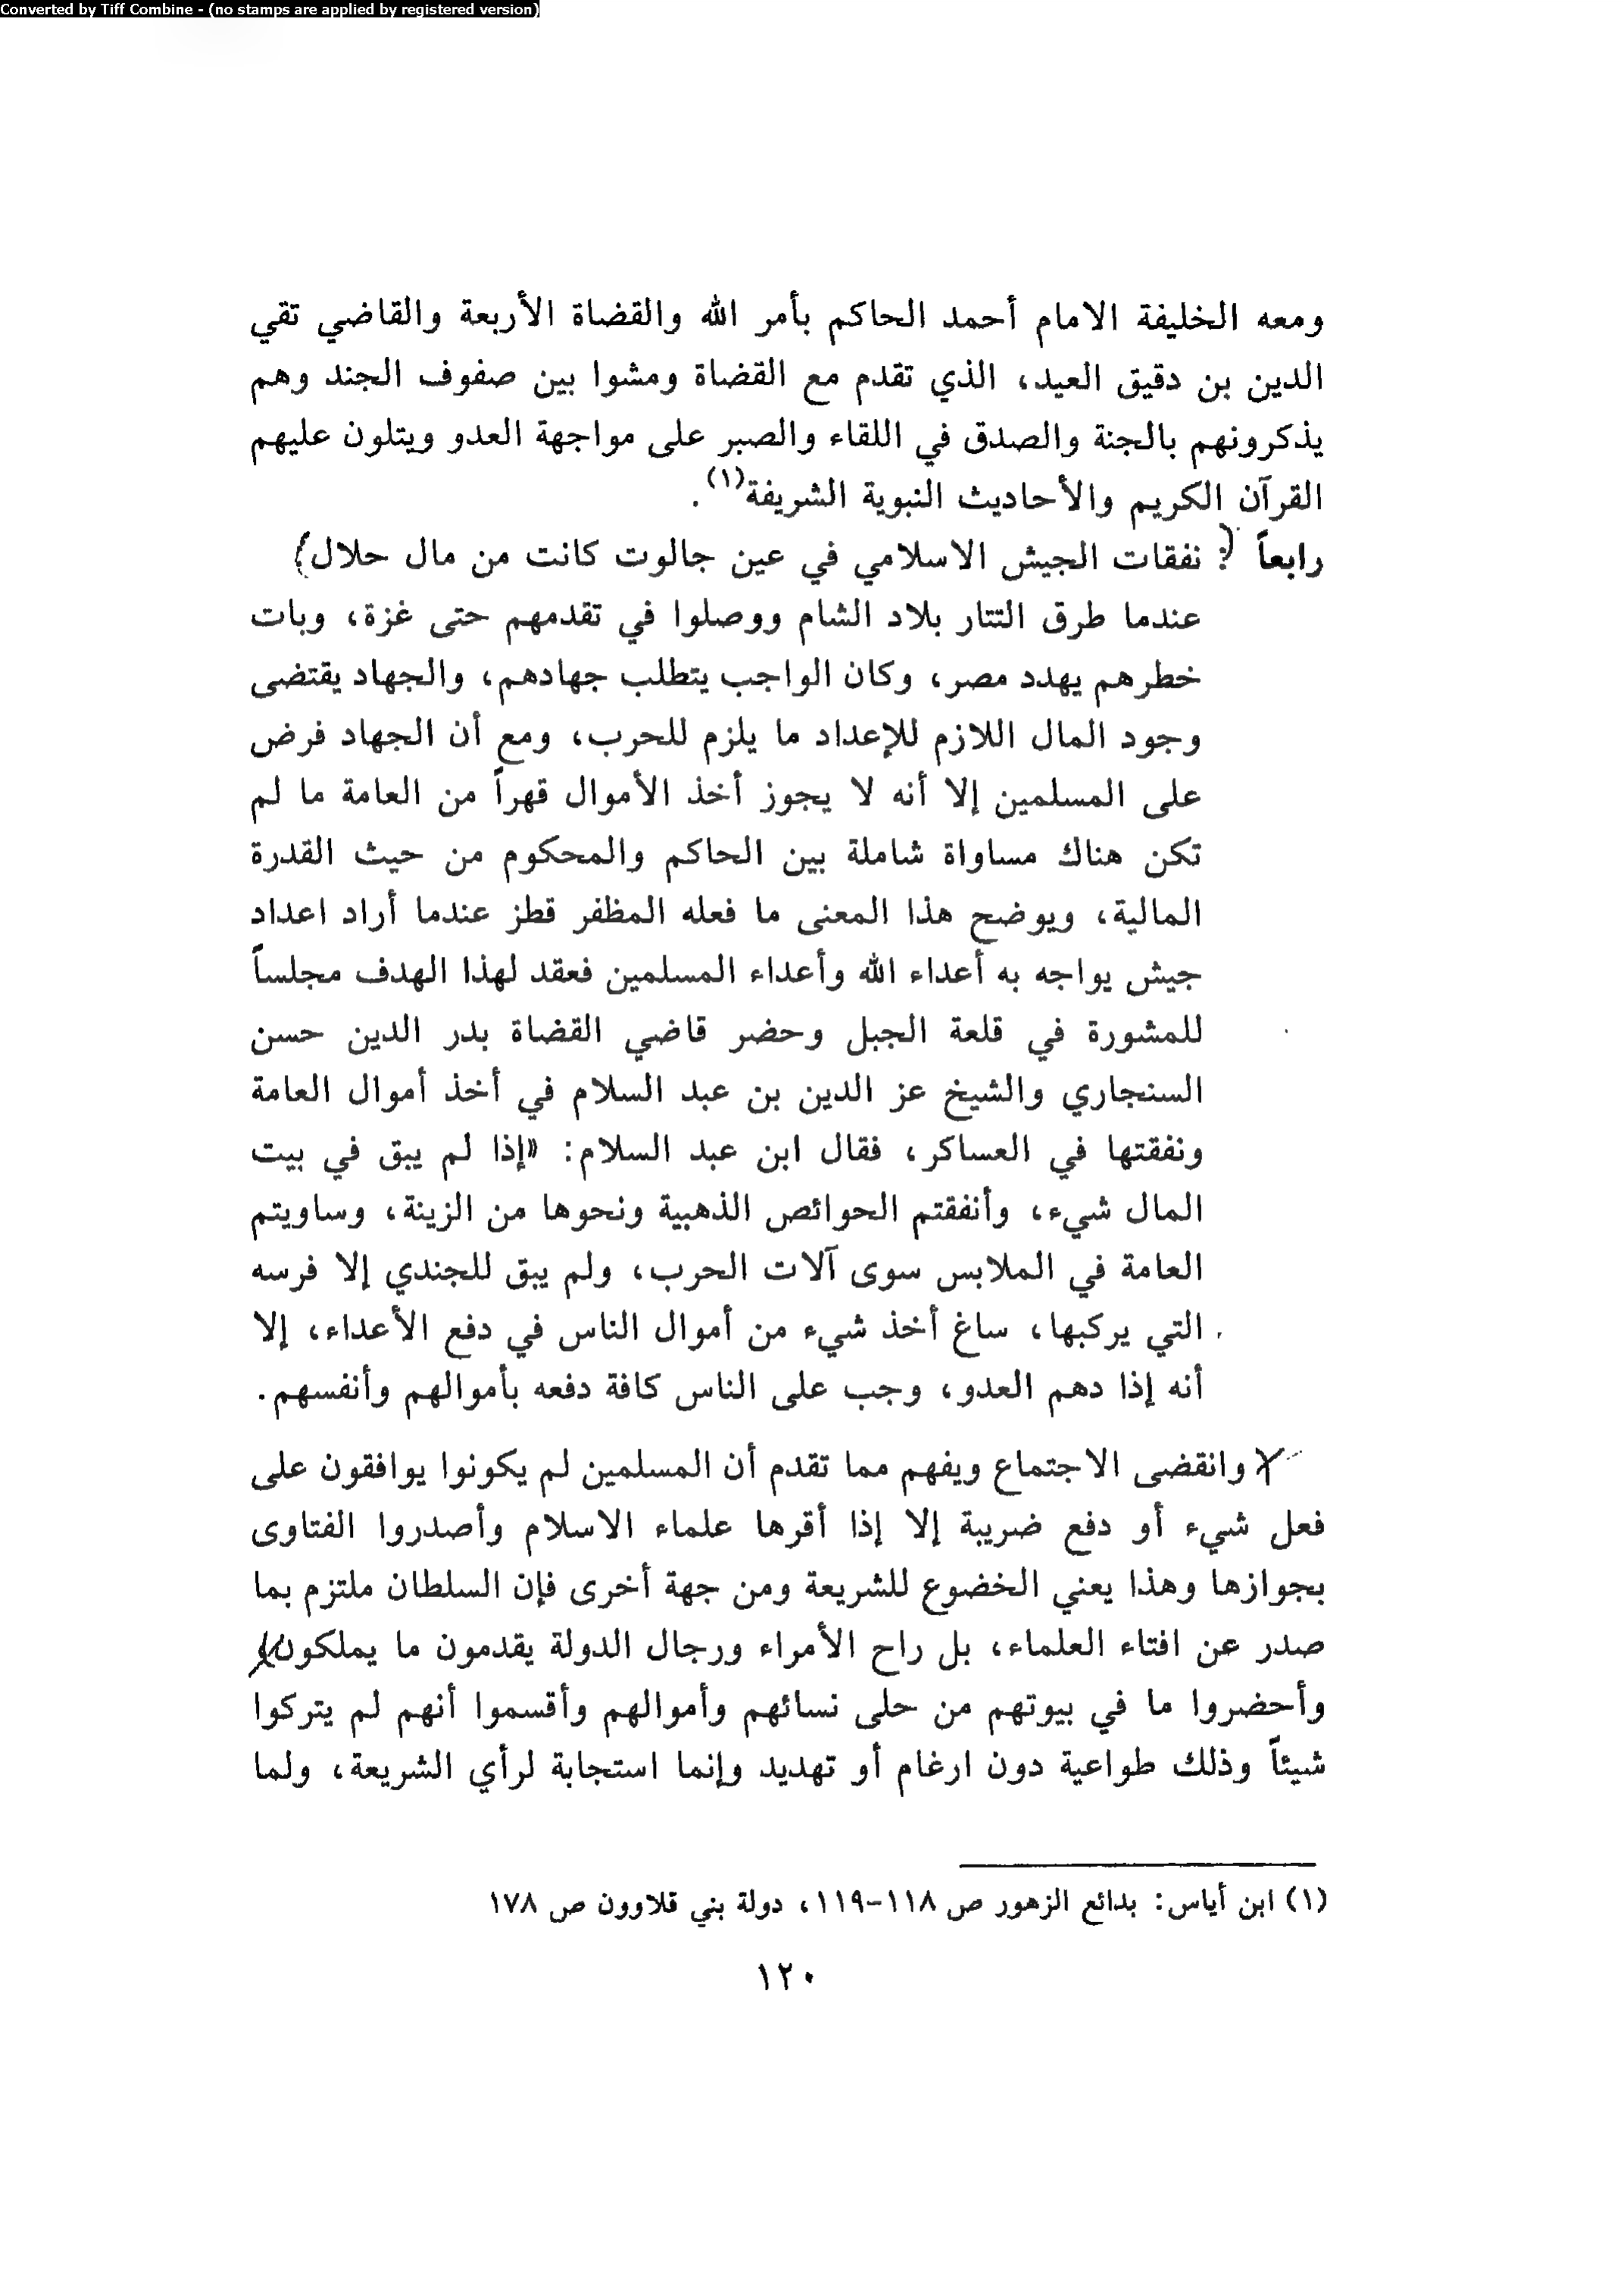 Converted by Tiff Combine - (no stamps are applied by registered version)
ومعه الخليفة الامام أحمد الحاكم بأمر الله والقضاة الأربعة والقاضي تقي
الدين بن دقيق العيد، الذي تقدم مع القضاة ومشوا بين صفوف الجند وهم
يذكرونهم بالجنة والصدق في اللقاء والصبر على مواجهة العدو ويتلون عليهم
القرآن الكريم والأحاديث النبوية الشريفة(١).
رابعاً : نفقات الجيش الاسلامي في عين جالوت كانت من مال حلال
عندما طرق التتار بلاد الشام ووصلوا في تقدمهم حتى غزة، وبات
خطرهم يهدد مصر، وكان الواجب يتطلب جهادهم، والجهاد يقتضى
وجود المال اللازم للإعداد ما يلزم للحرب، ومع أن الجهاد فرض
على المسلمين إلا أنه لا يجوز أخذ الأموال قهراً من العامة ما لم
تكن هناك مساواة شاملة بين الحاكم والمحكوم من حيث القدرة
المالية، ويوضح هذا المعنى ما فعله المظفر قطز عندما أراد اعداد
جيش يواجه به أعداء الله وأعداء المسلمين فعقد لهذا الهدف مجلساً
للمشورة في قلعة الجبل وحضر قاضي القضاة بدر الدين حسن
السنجاري والشيخ عز الدين بن عبد السلام في أخذ أموال العامة
ونفقتها في العساكر، فقال ابن عبد السلام: «إذا لم يبق في بيت
المال شيء، وأنفقتم الحوائص الذهبية ونحوها من الزينة، وساويتم
العامة في الملابس سوى آلات الحرب، ولم يبق للجندي إلا فرسه
التي يركبها، ساغ أخذ شيء من أموال الناس في دفع الأعداء، إلا
أنه إذا دهم العدو، وجب على الناس كافة دفعه بأموالهم وأنفسهم.
وانقضى الاجتماع ويفهم مما تقدم أن المسلمين لم يكونوا يوافقون على
فعل شيء أو دفع ضريبة إلا إذا أقرها علماء الاسلام وأصدروا الفتاوى
بجوازها وهذا يعني الخضوع للشريعة ومن جهة أخرى فإن السلطان ملتزم بما
صدر عن افتاء العلماء، بل راح الأمراء ورجال الدولة يقدمون ما يملكون
وأحضروا ما في بيوتهم من حلى نسائهم وأموالهم وأقسموا أنهم لم يتركوا
شيئاً وذلك طواعية دون ارغام أو تهديد وإنما استجابة لرأي الشريعة، ولما
(١) ابن أياس: بدائع الزهور ص ١١٨-١١٩، دولة بني قلاوون ص ١٧٨
١٢٠